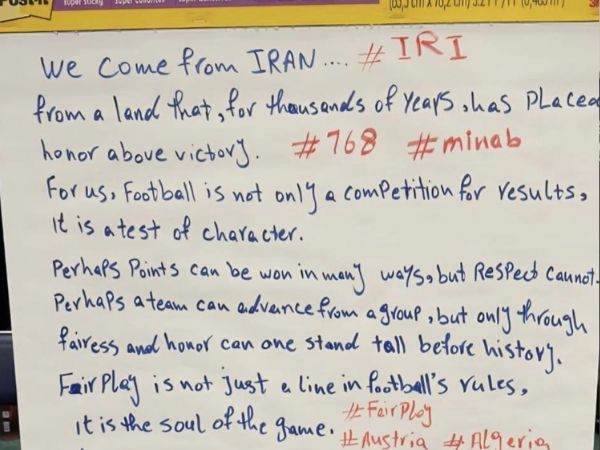 We come from IRAN.... #IRI
from a land that, for thousands of years, has placed
honor above victory. #768 #minab
For us, Football is not only a competition for results,
it is a test of character.
Perhaps Points can be won in many ways, but Respect cannot.
Perhaps a team can advance from a group, but only through
fairess and honor can one stand tall before history.
FairPlay is not just a line in football's rules,
it is the soul of the game. #FairPlay
#Austria #Algeria